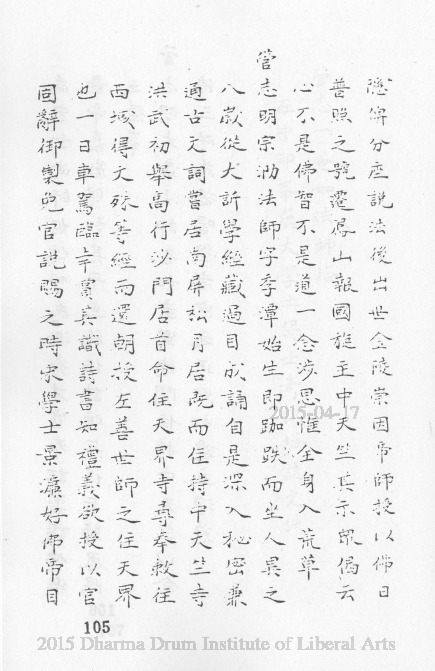 隱寧分座說法後出世金陵崇因帝師授以佛日
普照之號遷鳳山報國旋主中天竺其示眾偈云
心不是佛智不是道一念涉思惟全身入荒草
管志明宗泐法師字季潭始生即跏趺而坐人異之
八歲從大訢學經藏過目成誦自是深入秘密兼
通古文詞嘗居南屏松月居既而住持中天竺寺
洪武初舉高行沙門居首命住天界寺尋奉敕往
西域得文殊等經而還朝授左善世師之住天界
也一日車駕臨幸賞其識詩書知禮義欲授以官
固辭御製免官說賜之時宋學士景濂好佛帝目
105
2015-04-17
2015 Dharma Drum Institute of Liberal Arts